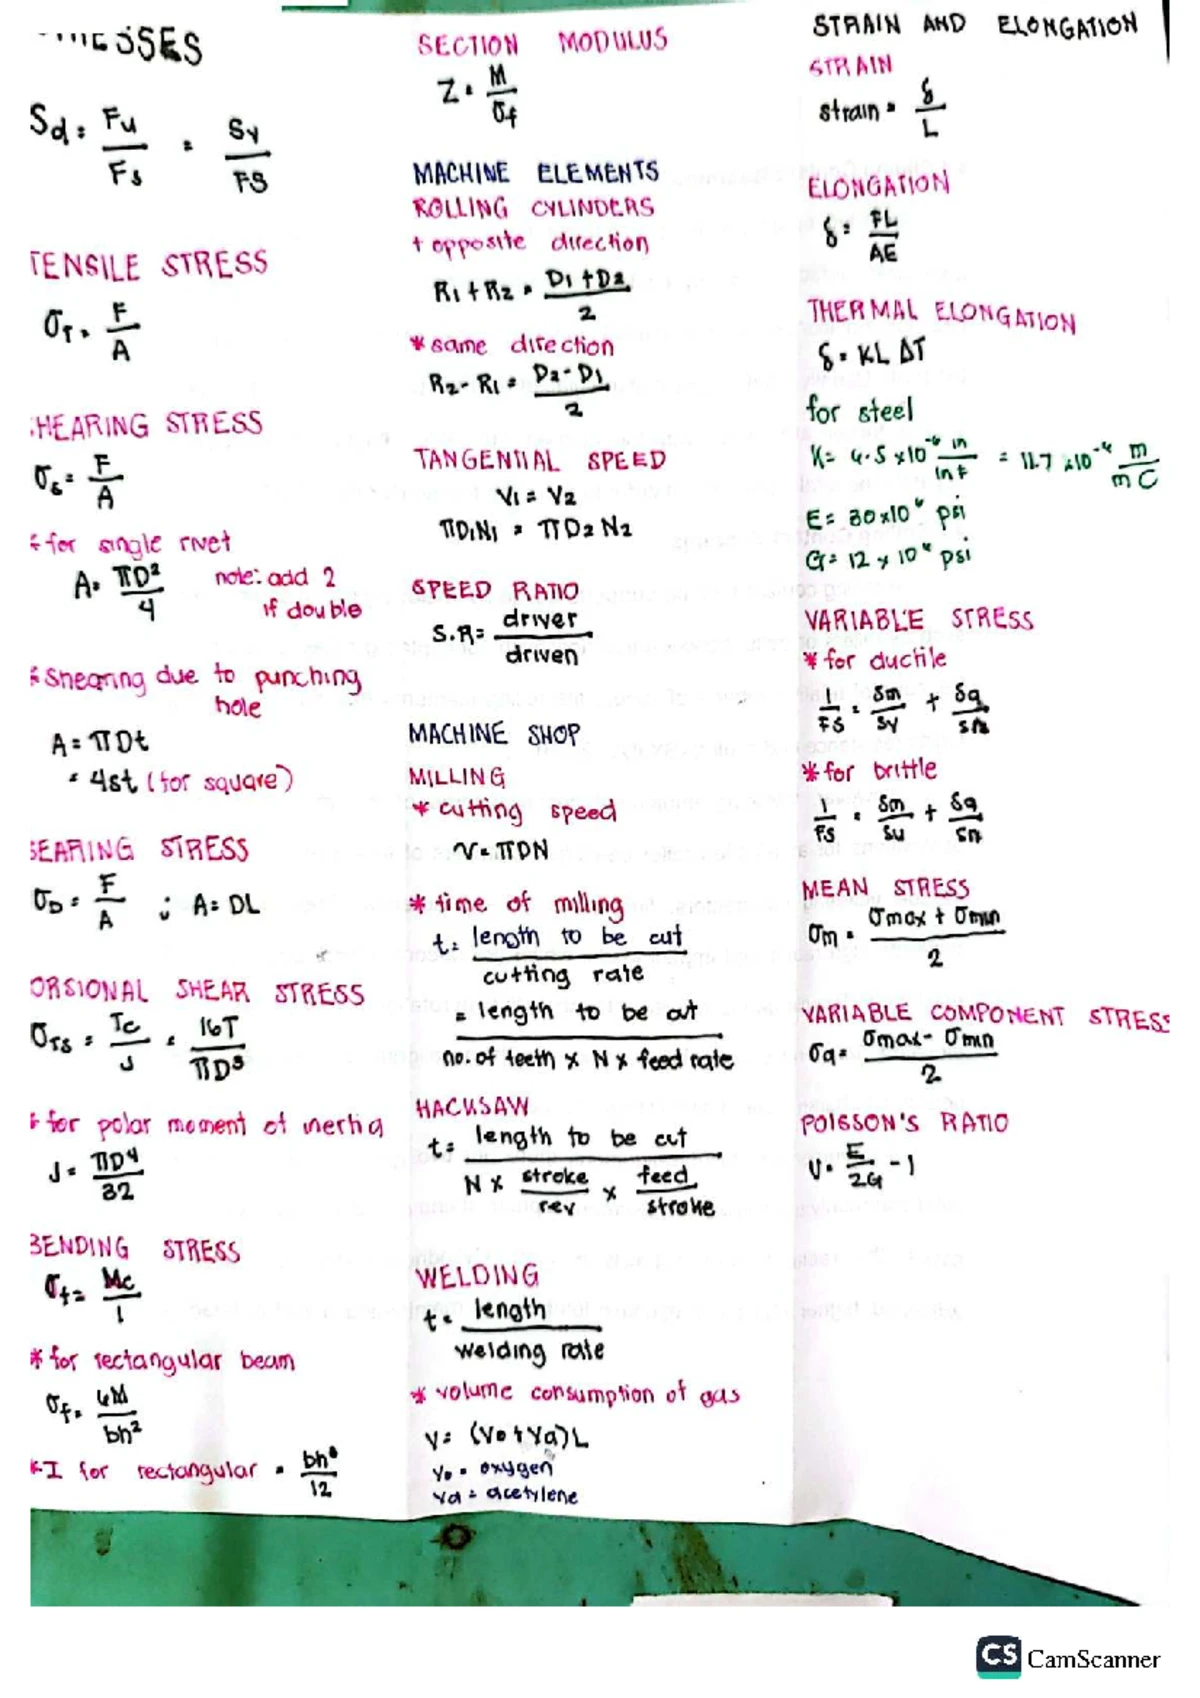 STRESSES
Sd = Fu/Fs = Sy/FS
TENSILE STRESS
σT = F/A
SHEARING STRESS
σs = F/A
* for single rivet
A = πD²/4 note: add 2 if double
* Shearing due to punching hole
A = πDt
= 4st (for square)
BEARING STRESS
σb = F/A ; A = DL
TORSIONAL SHEAR STRESS
σTS = Tc/J = 16T/πD³
* for polar moment of inertia
J = πD⁴/32
BENDING STRESS
σf = Mc/I
* for rectangular beam
σf = 6M/bh²
* I for rectangular = bh³/12
SECTION MODULUS
Z = M/σf
MACHINE ELEMENTS
ROLLING CYLINDERS
+ opposite direction
R1 + R2 = D1 + D2/2
* same direction
R2 - R1 = D2 - D1/2
TANGENTIAL SPEED
V1 = V2
πD1N1 = πD2N2
SPEED RATIO
S.R = driver/driven
MACHINE SHOP
MILLING
* cutting speed
V = πDN
* time of milling
t = length to be cut/cutting rate
= length to be cut/no. of teeth x N x feed rate
HACKSAW
t = length to be cut/N x stroke/rev x feed/stroke
WELDING
t = length/welding rate
* volume consumption of gas
V = (Vo + Va)L
Vo = oxygen
Va = acetylene
STRAIN AND ELONGATION
STRAIN
strain = δ/L
ELONGATION
δ = FL/AE
THERMAL ELONGATION
δ = KL ΔT
for steel
K = 6.5 x10⁻⁶ in/in F = 11.7 x10⁻⁶ m/m C
E = 30x10⁶ psi
G = 12 x 10⁶ psi
VARIABLE STRESS
* for ductile
1/FS = Sm/Sy + Sa/Sn
* for brittle
1/FS = Sm/Su + Sa/Sn
MEAN STRESS
σm = σmax + σmin/2
VARIABLE COMPONENT STRESS
σa = σmax - σmin/2
POISSON'S RATIO
υ = E/2G - 1
CS CamScanner